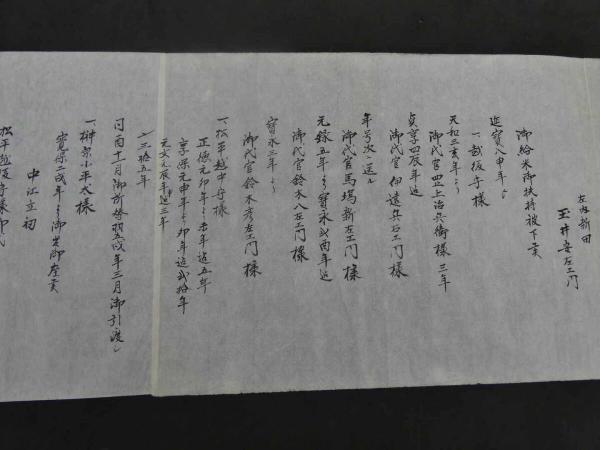 左内新田
玉井安左エ門
御給米御扶持被下置
延寳八申年ゟ
一、越後守様
天和三亥年ゟ
御代官 四上治兵衛様 三年
貞享四辰年迠
御代官 伊達兵右エ門様
年号次ニ送ル
御代官 馬場新左エ門様
元録五年ゟ寳永弐酉年迠
御代官 鈴木八左エ門様
寳永三年ゟ
御代官 鈴木彦左エ門様
一、松平越中守様
正徳元卯年ゟ未年迠五年
享保元申年ゟ卯年迠弐拾年
元文元辰年迠三年
〆三拾五年
同酉十一月御所替翌戌年三月御引渡し
一、榊原小平太様
寛保二戌年ゟ御出御座候
中江立初
松平越後守様御代